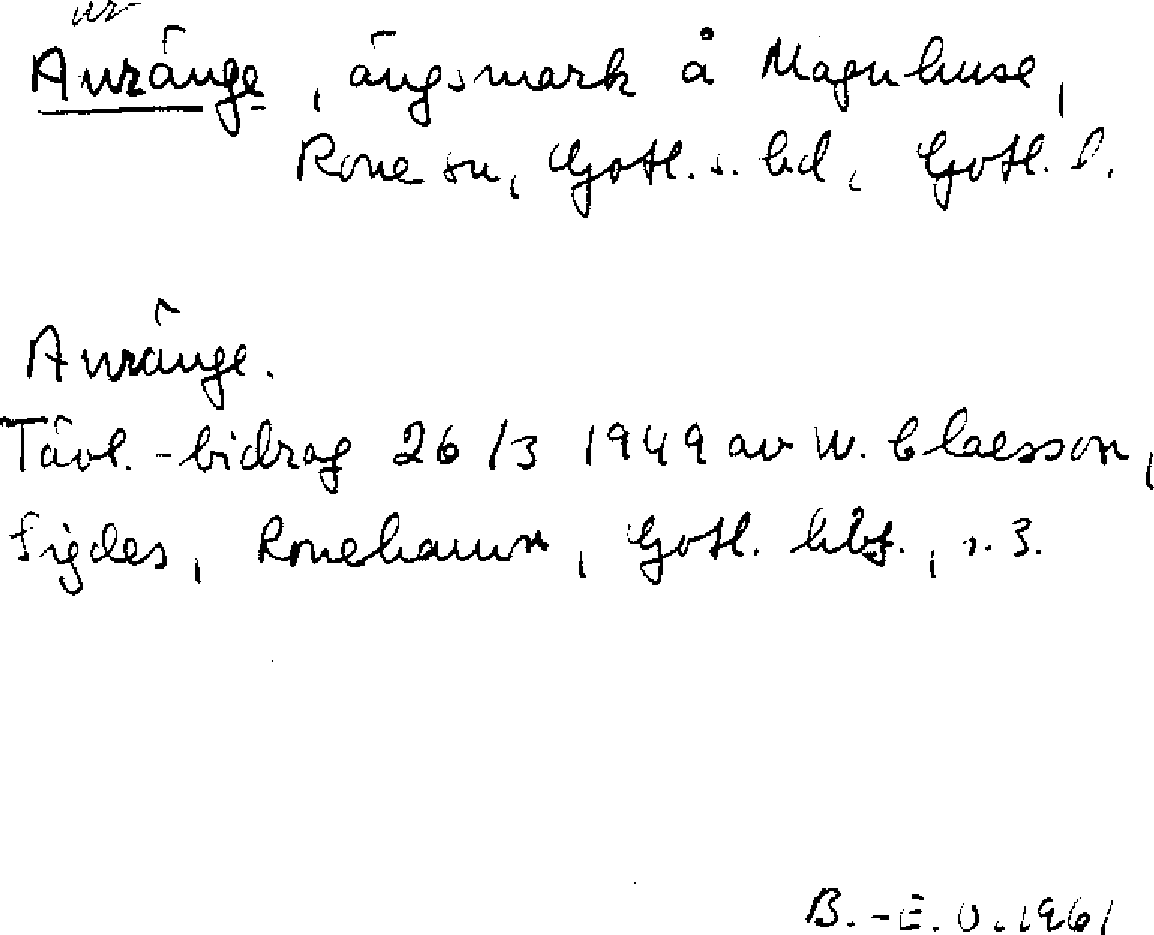 ur
Anränge, ängsmark å Magnhuse,
Rone sn, Gotl. s. hd, Gotl. l.
Anränge.
Tävl.-bidrag 26/3 1949 av W. Claesson,
Sigdes, Ronehamn, Gotl. hbf., s. 3.
B.-E. O. 1961